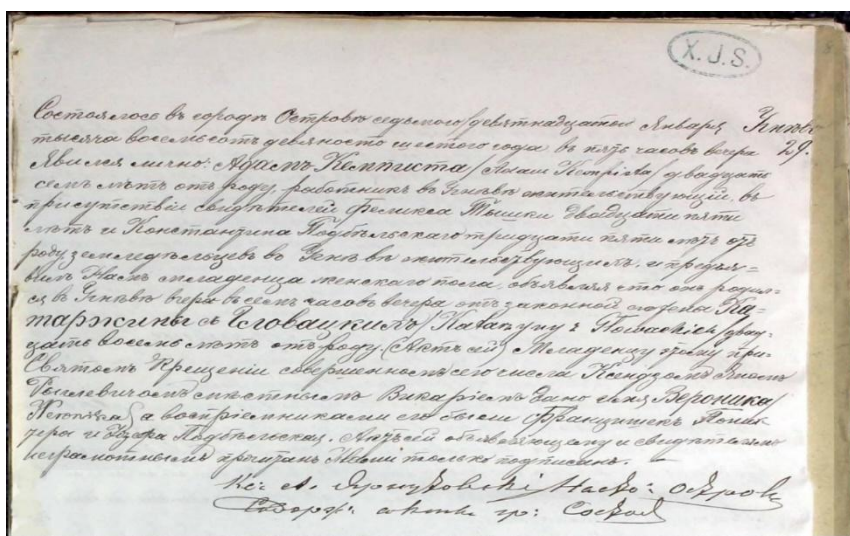 X. J. S.
Состоялось въ городѣ Островѣ седьмого/девятнадцатаго Января
Угнѣво
29.
тысяча восемьсотъ девяносто шестого года въ пять часовъ вечера
Явился лично: Адамъ Кемписта/Adam Kempista/двадцати
семь лѣтъ отъ роду, работникъ въ Угнѣвѣ жительствующій, въ
присутствіи свидѣтелей Феликса Тышки двадцати пяти
лѣтъ и Константина Подбѣльскаго тридцати пяти лѣтъ отъ
роду земледѣльцевъ въ Угнѣвѣ жительствующихъ, и предъя=
вилъ Намъ младенца женскаго пола, объявляя что онъ родил-
ся в Угнѣвѣ вчера въ семь часовъ вечера отъ законной его жены Ка-
таржины съ /Katarzyny z двад-
цать восемь лѣтъ отъ роду. (Актъ сей) Младенцу этому при
Святомъ Крещеніи совершенномъ сего числа Ксендзомъ
мѣстнымъ Викаріемъ дано имя Вероника/
а воспріемниками его были Францишекъ
и Подбѣльская. Актъ сей объявляющему и свидѣтелямъ
неграмотнымъ прочитанъ Нами только подписанъ.
Кс: А.